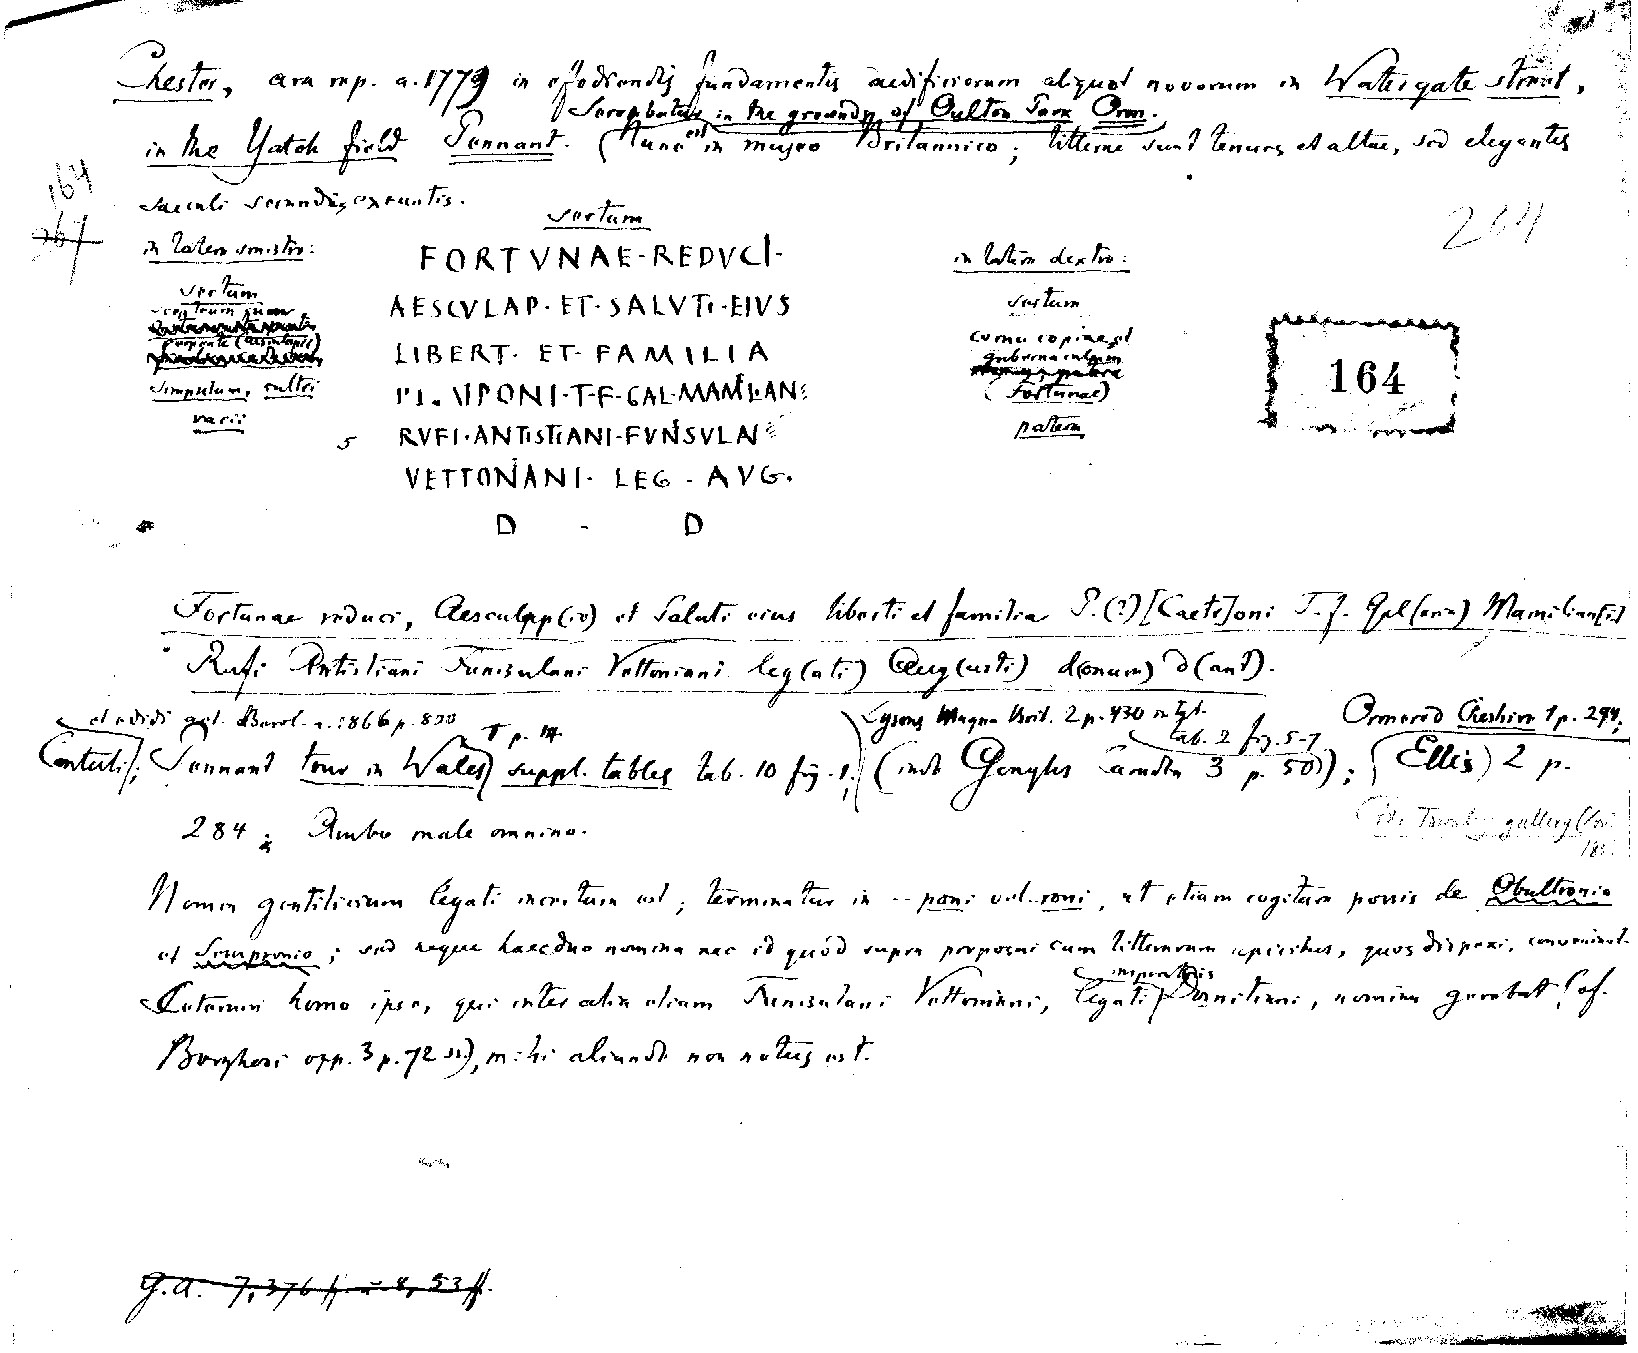 Chester, ara rep. a. 1779 in effodiendis fundamentis aedificiorum aliquot novorum in Watergate street,
servabatur in the grounds of Oulton Park Orm.
in the Yatch field Pennant. (Nunc est in museo Britannico; litterae sunt tenues et altae, sed elegantes
saeculi secundi exeuntis.
164
267
264
in latere sinistro:
sertum
simpulum, cultri
varii
sertum
FORTVNAE·REDVCI·
AESCVLAP·ET·SALVTI·EIVS
LIBERT·ET·FAMILIA
5 RVFI·ANTISTIANI·FVNSVLAN
VETTONANI·LEG·AVG.
D - D
in latere dextro:
sertum
cornu copiae et
gubernaculum
(Fortunae)
patera
164
Fortunae reduci, Aesculap(io) et Saluti eius liberti et familia P.(?) [Caete]oni T. f. Gal(eria) Mamilian[i]
Rufi Antistiani Funisulani Vettoniani leg(ati) Aug(usti) d(onum) d(ant).
et edidi arch. Berol. a. 1866 p. 830
T p. 14
Lysons Magna Brit. 2 p. 430 
tab. 2 fig. 5-7
Ormerod Cheshire 1 p. 294;
Contuli; Pennant tour in Wales suppl. tables tab. 10 fig. 1; (inde Goughs Camden 3 p. 50); Ellis 2 p.
284; Ambo male omnino.
gallery
Nomen gentilicium legati incertum est; terminatur in --poni vel -roni, ut etiam cogitare possis de Obultronio
et Sempronio; sed neque haec duo nomina nec id quod supra proposui cum litterarum apicibus, quos dispexi, conveniunt.
imperatoris
Ceterum homo ipse, qui inter alia etiam Funisulani Vettoniani, legati Domitiani, nomina gerebat (cf.
Borghesi opp. 3 p. 72 ss), mihi aliunde non notus est.
G.A. 7, 376 ff. 8, 53 ff.